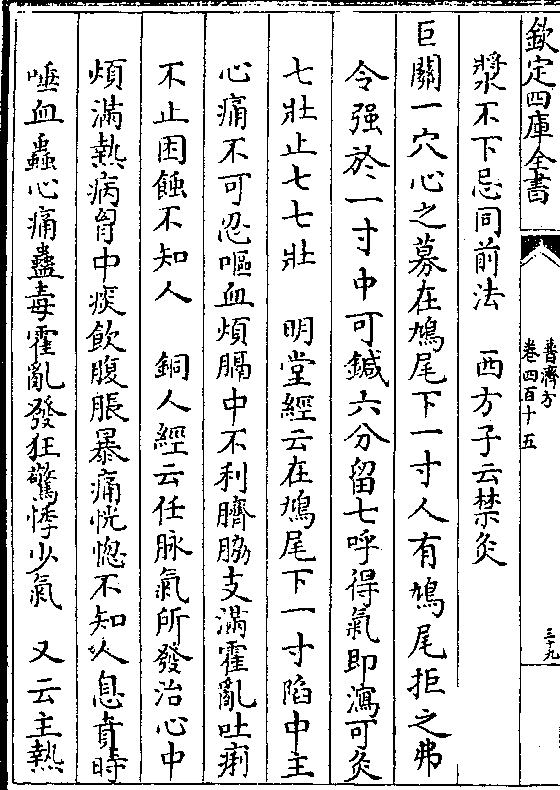 欽定四庫全書
普濟方
卷四百十五
三十九
漿不下忌同前法　西方子云禁灸
巨關一穴心之募在鳩尾下一寸人有鳩尾拒之弗
令强於一寸中可鍼六分留七呼得氣即瀉可灸
七壯止七七壯　明堂經云在鳩尾下一寸陷中主
心痛不可忍嘔血煩膈中不利臍脇支滿霍亂吐痢
不止困蝕不知人　銅人經云任脉氣所發治心中
煩滿熱病胷中痰飲腹脹暴痛恍惚不知人息賁時
唾血蟲心痛蠱毒霍亂發狂驚悸少氣　又云主熱